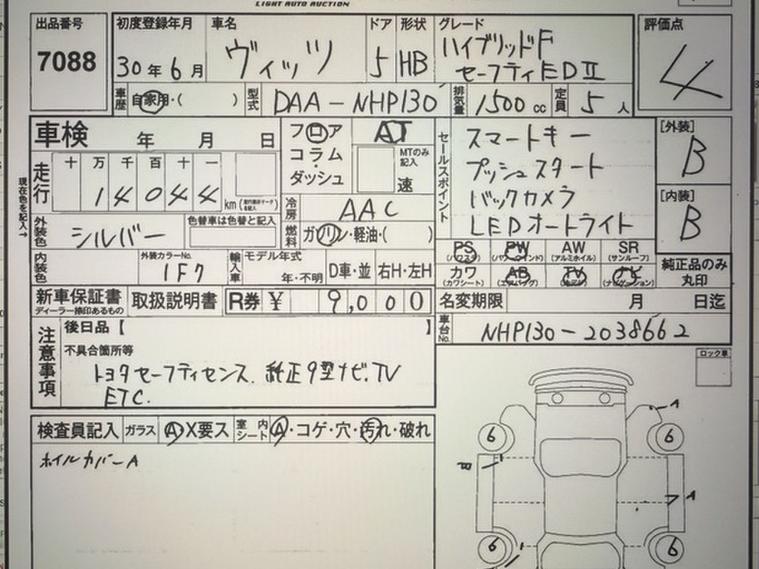 LIGHT AUTO AUCTION
出品番号
7088
初度登録年月
30年6月
車名
ヴィッツ
ドア
5
形状
HB
グレード
ハイブリッドF
セーフティEDⅡ
評価点
4
車歴
自家用・( )
型式
DAA-NHP130
排気量
1500cc
定員
5人
車検 年 月 日
フロア
コラム・
ダッシュ
AT
MTのみ記入
速
セールスポイント
スマートキー
プッシュスタート
バックカメラ
LEDオートライト
[外装]
B
[内装]
B
現在色を記入→
走行
十 万 千 百 十 一
1 4 0 4 4
km
冷房
AAC
燃料
ガソリン・軽油・( )
外装色
シルバー
色替車は色替と記入
内装色
外装カラーNo.
1F7
輸入車
モデル年式
年・不明
D車・並
右H・左H
PS
(パワステ)
PW
(パワーウインド)
AW
(アルミホイル)
SR
(サンルーフ)
カワ
(カワシート)
AB
(エアバッグ)
TV
ナビ
(ナビゲーション)
純正品のみ
丸印
新車保証書
ディーラー捺印あるもの
取扱説明書
R券 ¥ 9,000
名変期限 月 日迄
車台No.
NHP130-2038662
注意事項
後日品【 】
不具合箇所等
トヨタセーフティセンス.純正9型ナビ.TV
ETC.
ロック車
検査員記入
ガラス
A X要ス
室内シート
A・コゲ・穴・汚れ・破れ
ホイルカバーA
A
6
6
B
A
6
6